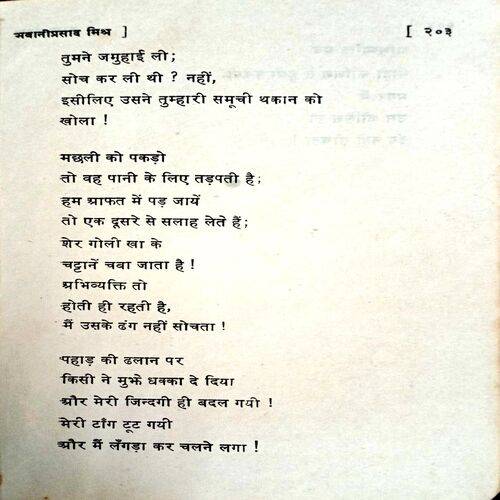 भवानीप्रसाद मिश्र ] [ २०३
तुमने जमुहाई ली;
सोच कर ली थी ? नहीं,
इसीलिए उसने तुम्हारी समूची थकान को
खोला !
मछली को पकड़ो
तो वह पानी के लिए तड़पती है;
हम आफत में पड़ जायें
तो एक दूसरे से सलाह लेते हैं;
शेर गोली खा के
चट्टानें चबा जाता है !
अभिव्यक्ति तो
होती ही रहती है,
मैं उसके ढंग नहीं सोचता !
पहाड़ की ढलान पर
किसी ने मुझे धक्का दे दिया
और मेरी ज़िन्दगी ही बदल गयी !
मेरी टाँग टूट गयी
और मैं लँगड़ा कर चलने लगा !